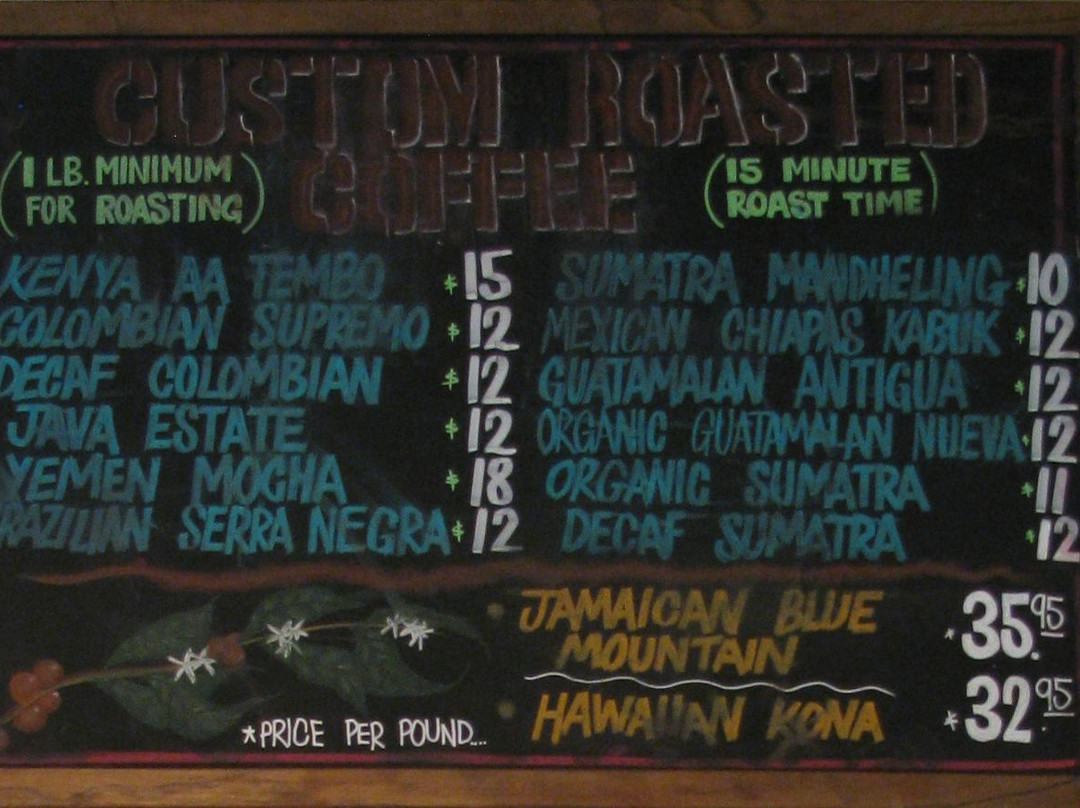 CUSTOM ROASTED
COFFEE
(1 LB. MINIMUM
FOR ROASTING)
(15 MINUTE
ROAST TIME)
KENYA AA TEMBO $15
COLOMBIAN SUPREMO $12
DECAF COLOMBIAN $12
JAVA ESTATE $12
YEMEN MOCHA $18
RAZILIAN SERRA NEGRA $12
SUMATRA MANDHELING $10
MEXICAN CHIAPAS KABUK $12
GUATAMALAN ANTIGUA $12
ORGANIC GUATAMALAN NUEVA $12
ORGANIC SUMATRA $11
DECAF SUMATRA $12
JAMAICAN BLUE
MOUNTAIN *35.95
HAWAIIAN KONA *32.95
*PRICE PER POUND...